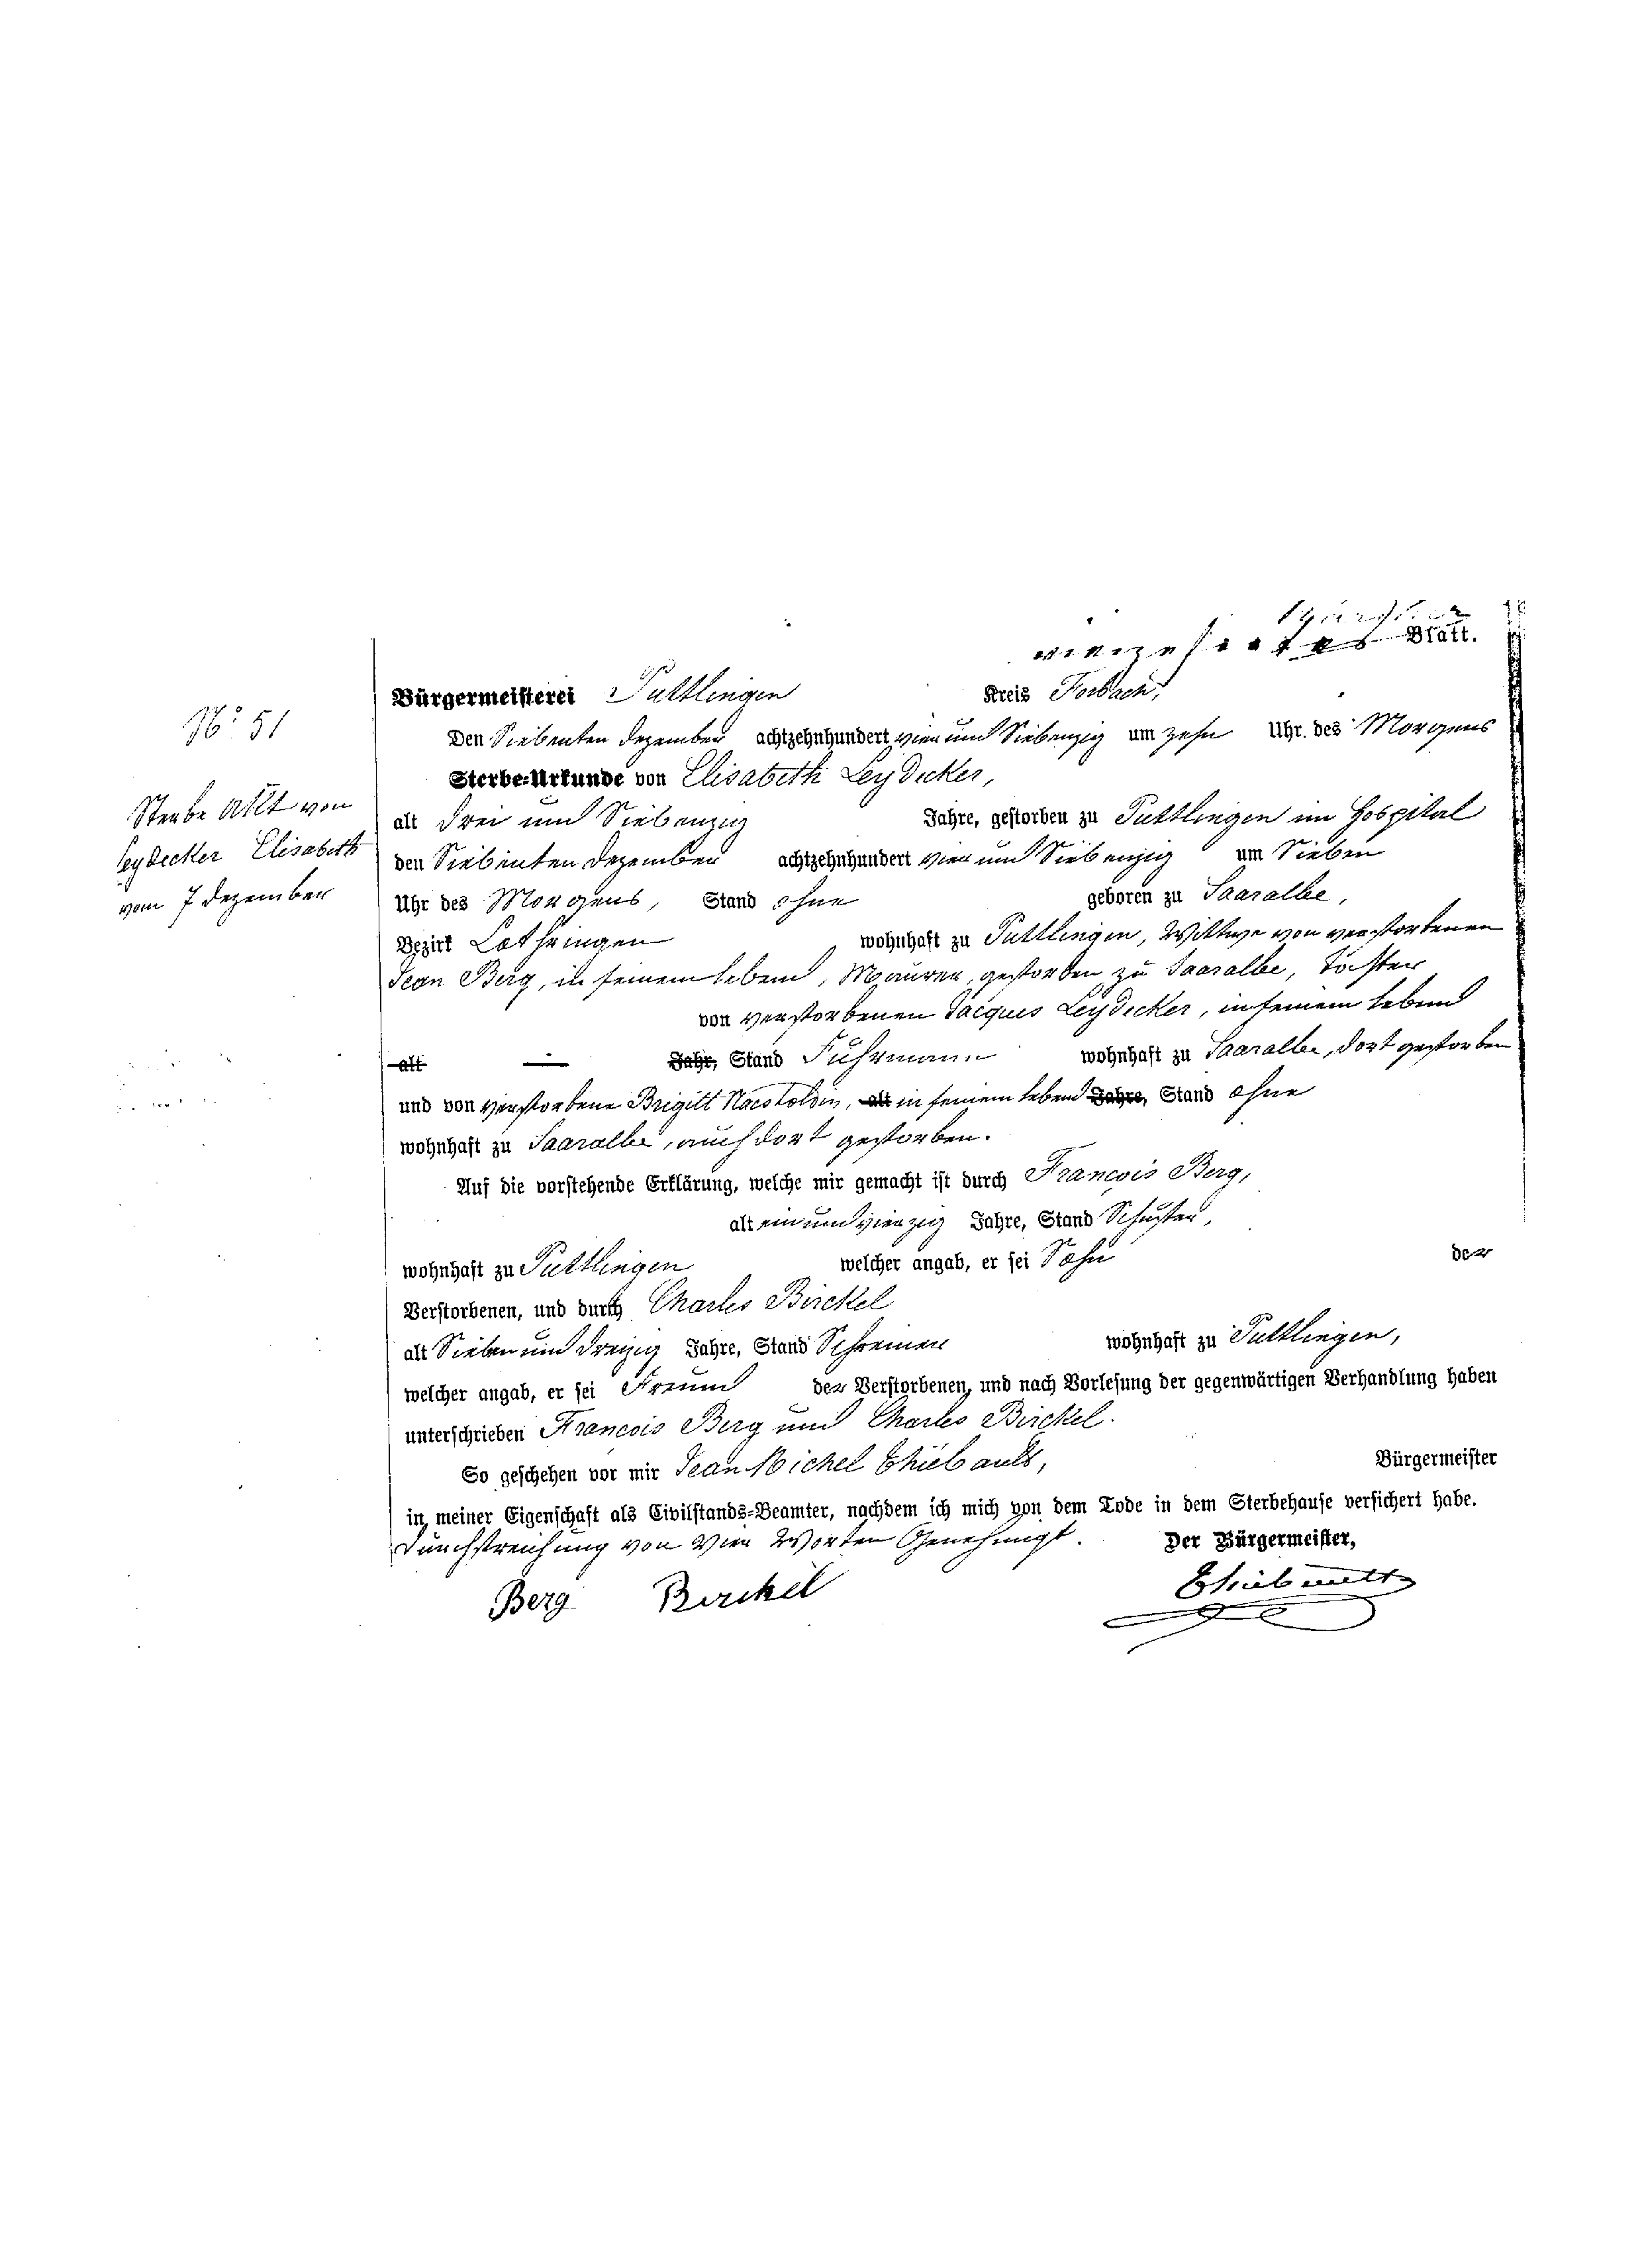 vierzehntes Blatt.
Bürgermeisterei Puttlingen Kreis Forbach,
N° 51
Den Siebenten Dezember achtzehnhundert vier und Siebenzig um zehn Uhr des Morgens
Sterbe-Urkunde von Elisabeth Leydecker,
Sterbe Akt von
Leydecker Elisabeth
vom 7 Dezember
alt drei und Siebenzig Jahre, gestorben zu Puttlingen im Hospital
den Siebenten Dezember achtzehnhundert vier und Siebenzig um Sieben
Uhr des Morgens, Stand ohne geboren zu Saaralbe,
Bezirk Lothringen wohnhaft zu Puttlingen, Wittwe von verstorbenen
Jean Berg, in seinem lebend, Maurer, gestorben zu Saaralbe, Tochter
von verstorbenen Jacques Leydecker, in seinem lebend
alt — Jahr, Stand Fuhrmann wohnhaft zu Saaralbe, dort gestorben
und von verstorbene Brigitt, alt in seinem lebend Jahre, Stand ohne
wohnhaft zu Saaralbe, auch dort gestorben.
Auf die vorstehende Erklärung, welche mir gemacht ist durch Francois Berg,
alt ein und vierzig Jahre, Stand Schuster,
wohnhaft zu Puttlingen welcher angab, er sei Sohn der
Verstorbenen, und durch Charles Birckel
alt Sieben und dreizig Jahre, Stand Schreiner wohnhaft zu Puttlingen,
welcher angab, er sei Freund der Verstorbenen, und nach Vorlesung der gegenwärtigen Verhandlung haben
unterschrieben Francois Berg und Charles Birckel.
So geschehen vor mir Jean Michel Thiebault, Bürgermeister
in meiner Eigenschaft als Civilstands-Beamter, nachdem ich mich von dem Tode in dem Sterbehause versichert habe.
Durchstreichung von Vier Worten Genehmigt. Der Bürgermeister,
Berg Birckel Thiebault